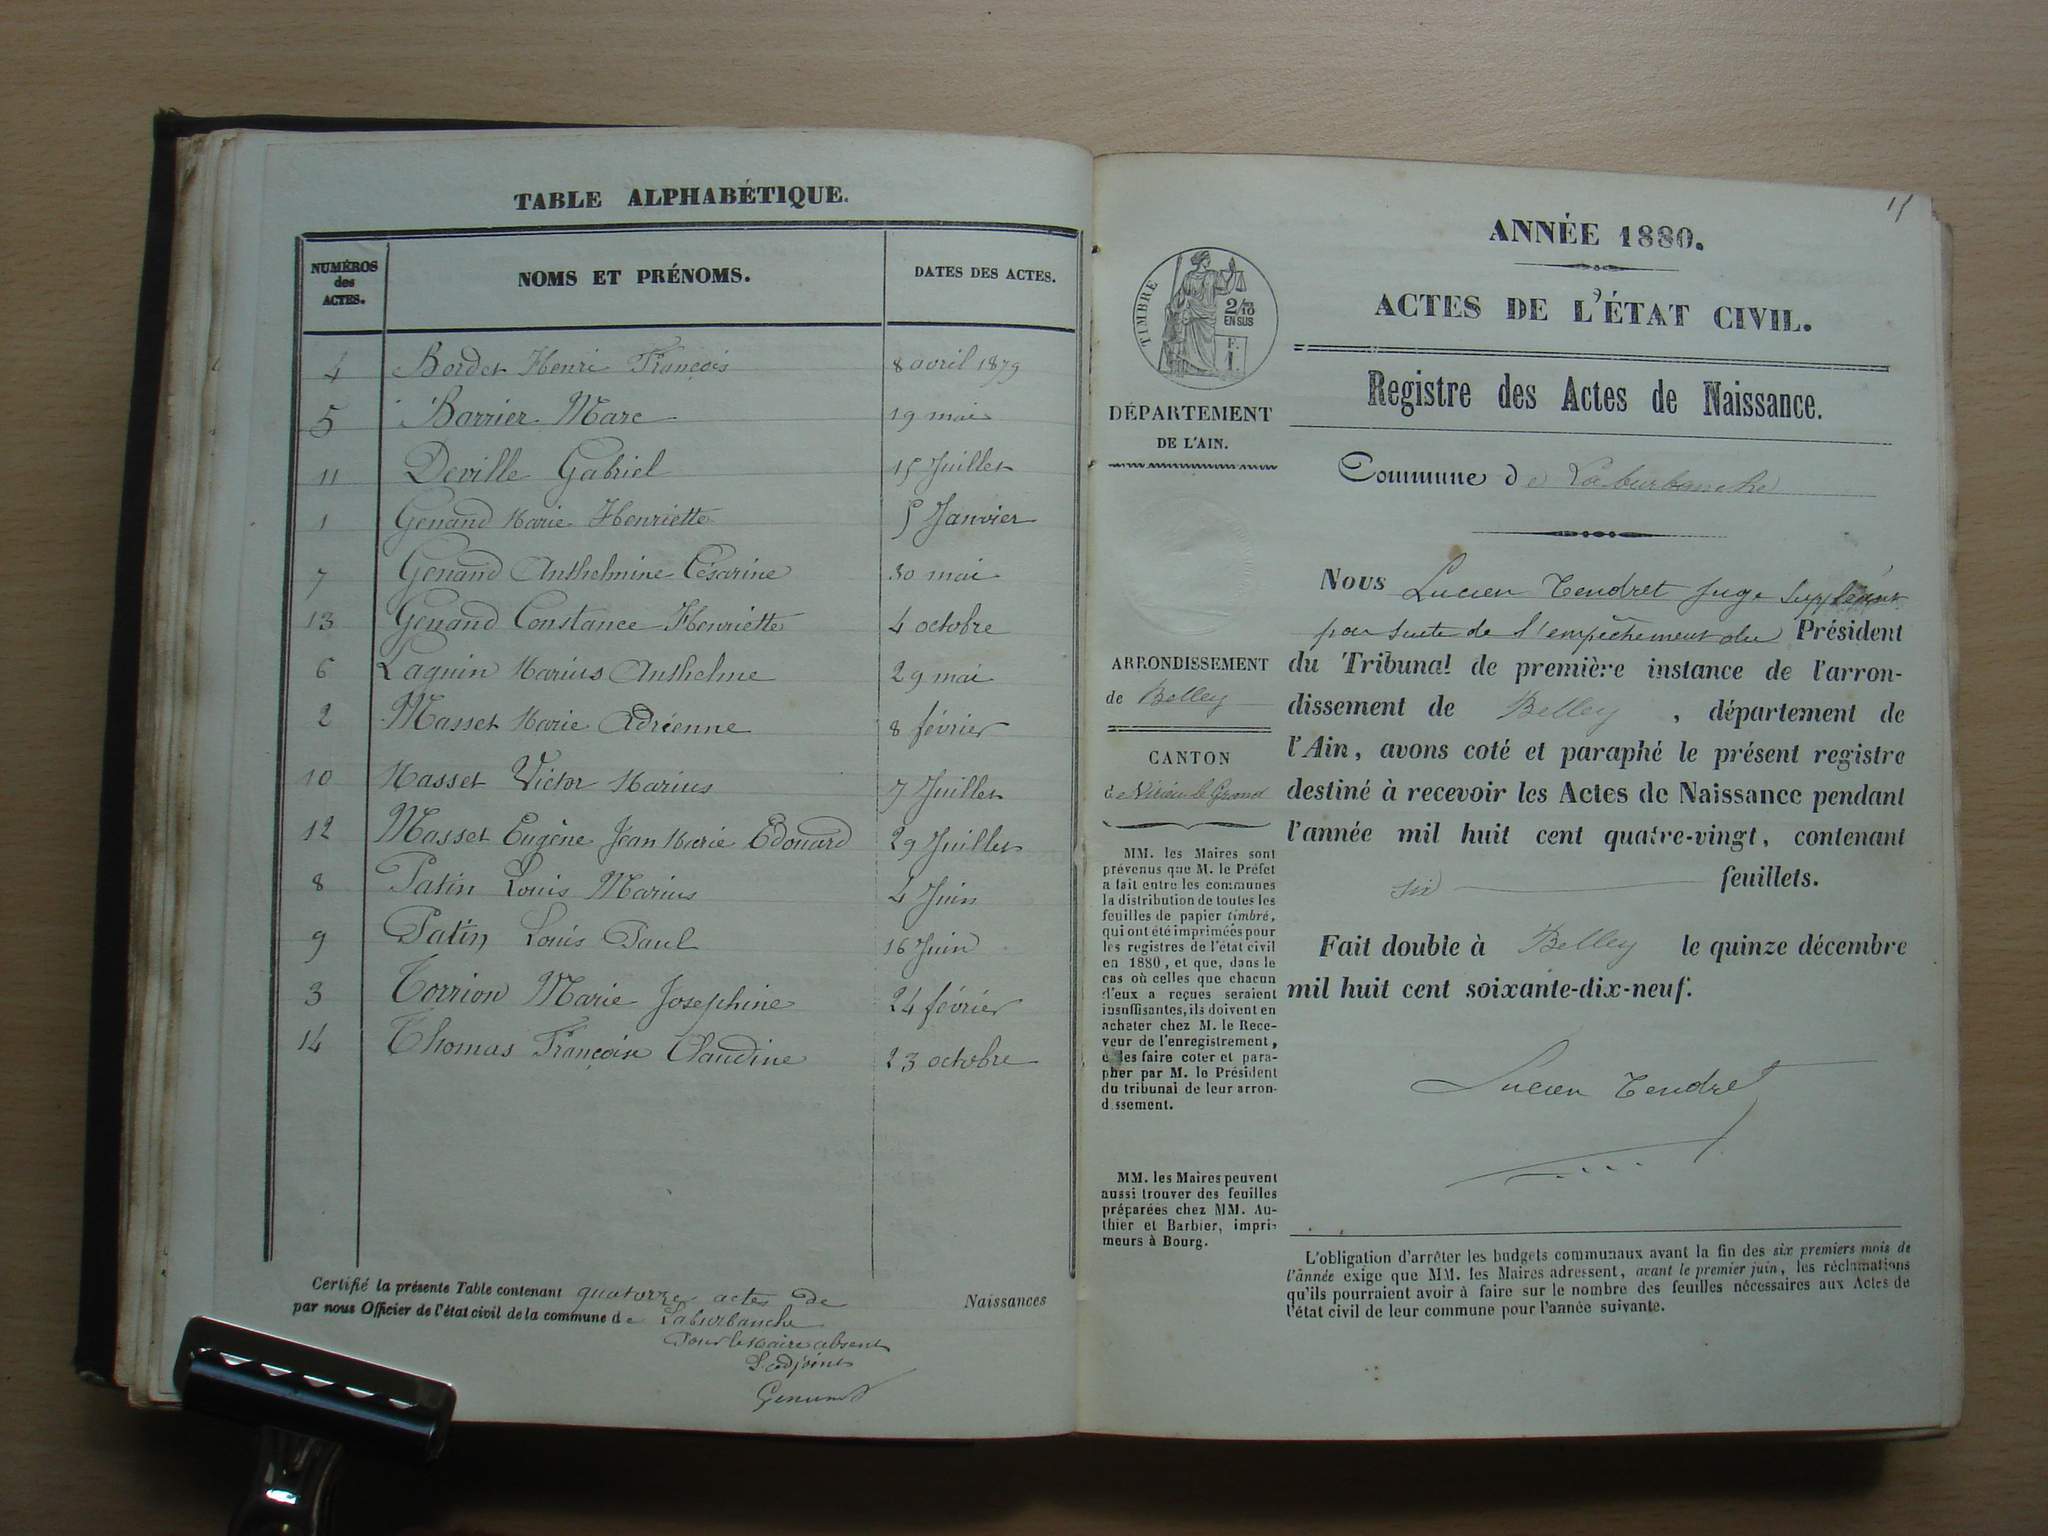 TABLE ALPHABÉTIQUE.
NUMÉROS des ACTES. NOMS ET PRÉNOMS. DATES DES ACTES.
4 Bordet Henri François 8 avril 1879
5 Barrier Marc 19 mai
11 Deville Gabriel 15 Juillet
1 Genand Marie Henriette 5 Janvier
7 Genand Anthelmine Césarine 30 mai
13 Genand Constance Henriette 4 octobre
6 Laguin Marius Anthelme 29 mai
2 Masset Marie Adrienne 8 février
10 Masset Victor Marius 7 Juillet
12 Masset Eugène Jean Marie Edouard 29 Juillet
8 Patin Louis Marius 4 Juin
9 Patin Louis Paul 16 Juin
3 Torrion Marie Josephine 24 février
14 Thomas Françoise Claudine 23 octobre
Certifié la présente Table contenant quatorze actes de Naissances
par nous Officier de l'état civil de la commune de Laburbanche
Pour le Maire absent
L'adjoint
Genand
15
ANNÉE 1880.
ACTES DE L'ÉTAT CIVIL.
Registre des Actes de Naissance.
Commune de Laburbanche
TIMBRE
2/10
EN SUS
F.
1.
DÉPARTEMENT
DE L'AIN.
ARRONDISSEMENT
de Belley
CANTON
de Virieu le Grand
MM. les Maires sont
prévenus que M. le Préfet
a fait entre les communes
la distribution de toutes les
feuilles de papier timbré,
qui ont été imprimées pour
les registres de l'état civil
en 1880, et que, dans le
cas où celles que chacun
d'eux a reçues seraient
insuffisantes, ils doivent en
acheter chez M. le Rece-
veur de l'enregistrement,
et les faire coter et para-
pher par M. le Président
du tribunal de leur arron-
dissement.
MM. les Maires peuvent
aussi trouver des feuilles
préparées chez MM. Au-
thier et Barbier, impri-
meurs à Bourg.
Nous Lucien Tendret Juge Suppléant
par suite de l'empêchement du Président
du Tribunal de première instance de l'arron-
dissement de Belley, département de
l'Ain, avons coté et paraphé le présent registre
destiné à recevoir les Actes de Naissance pendant
l'année mil huit cent quatre-vingt, contenant
six feuillets.
Fait double à Belley le quinze décembre
mil huit cent soixante-dix-neuf.
Lucien Tendret
L'obligation d'arrêter les budgets communaux avant la fin des six premiers mois de
l'année exige que MM. les Maires adressent, avant le premier juin, les réclamations
qu'ils pourraient avoir à faire sur le nombre des feuilles nécessaires aux Actes de
l'état civil de leur commune pour l'année suivante.